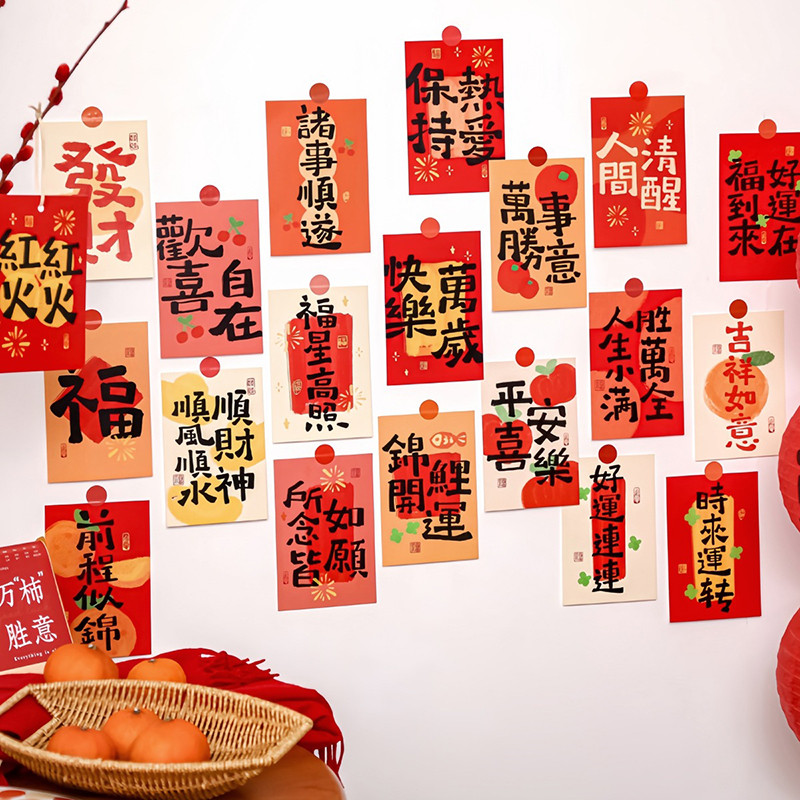 發
財
諸事順遂
保持
熱愛
人間
清醒
好運在
福到來
紅紅
火火
歡喜
自在
萬事
勝意
快樂
萬歲
福星高照
人生小滿
胜萬全
吉祥如意
福
順風順水
順財神
平安
喜樂
錦鯉
開運
所念皆
如願
好運連連
時來運转
前程似錦
万“柿”
胜意